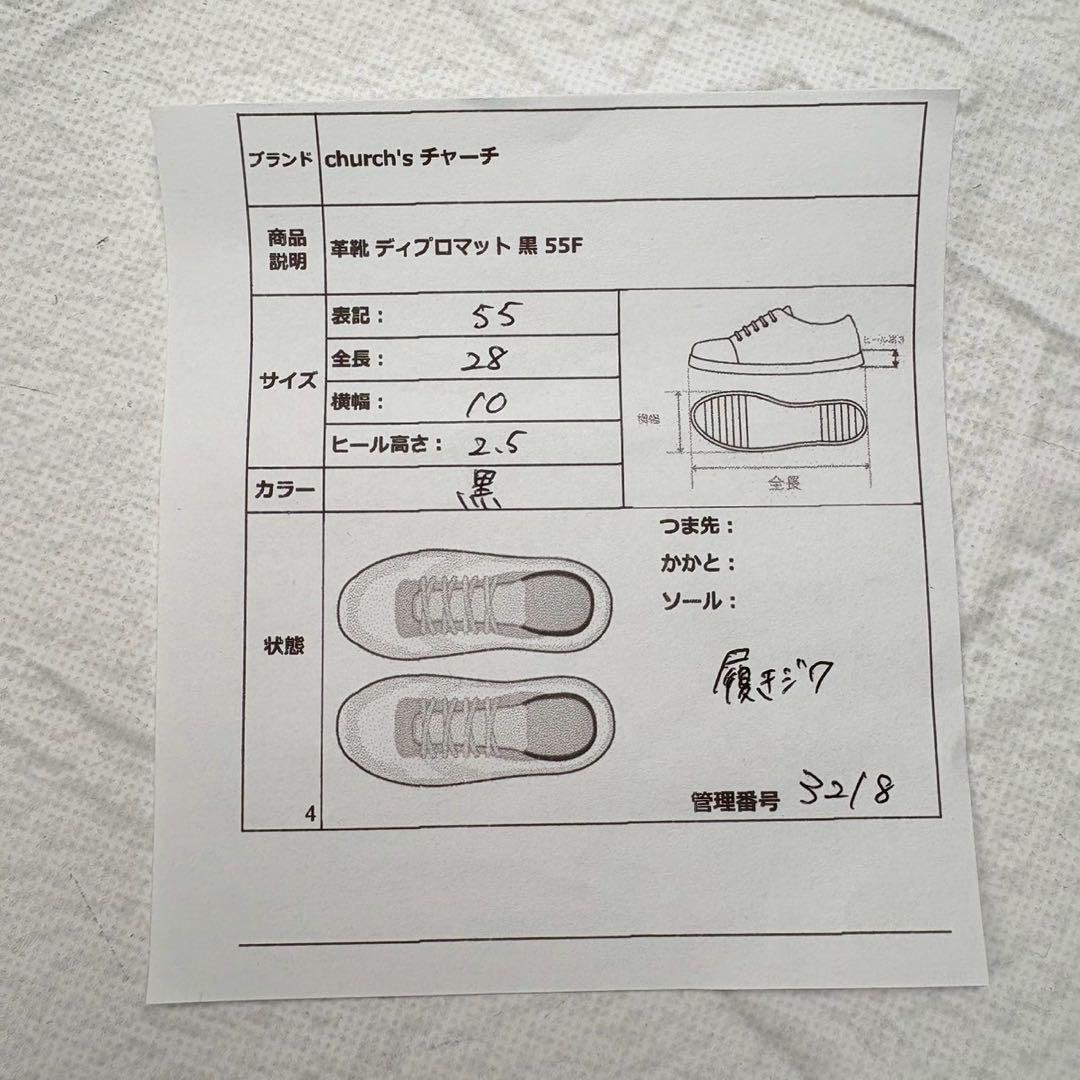 ブランド church's チャーチ
商品
説明
革靴 ディプロマット 黒 55F
サイズ
表記： 55
全長： 28
横幅： 10
ヒール高さ： 2.5
横幅
全長
カラー 黒
状態
つま先：
かかと：
ソール：
履きジワ
4
管理番号 3218